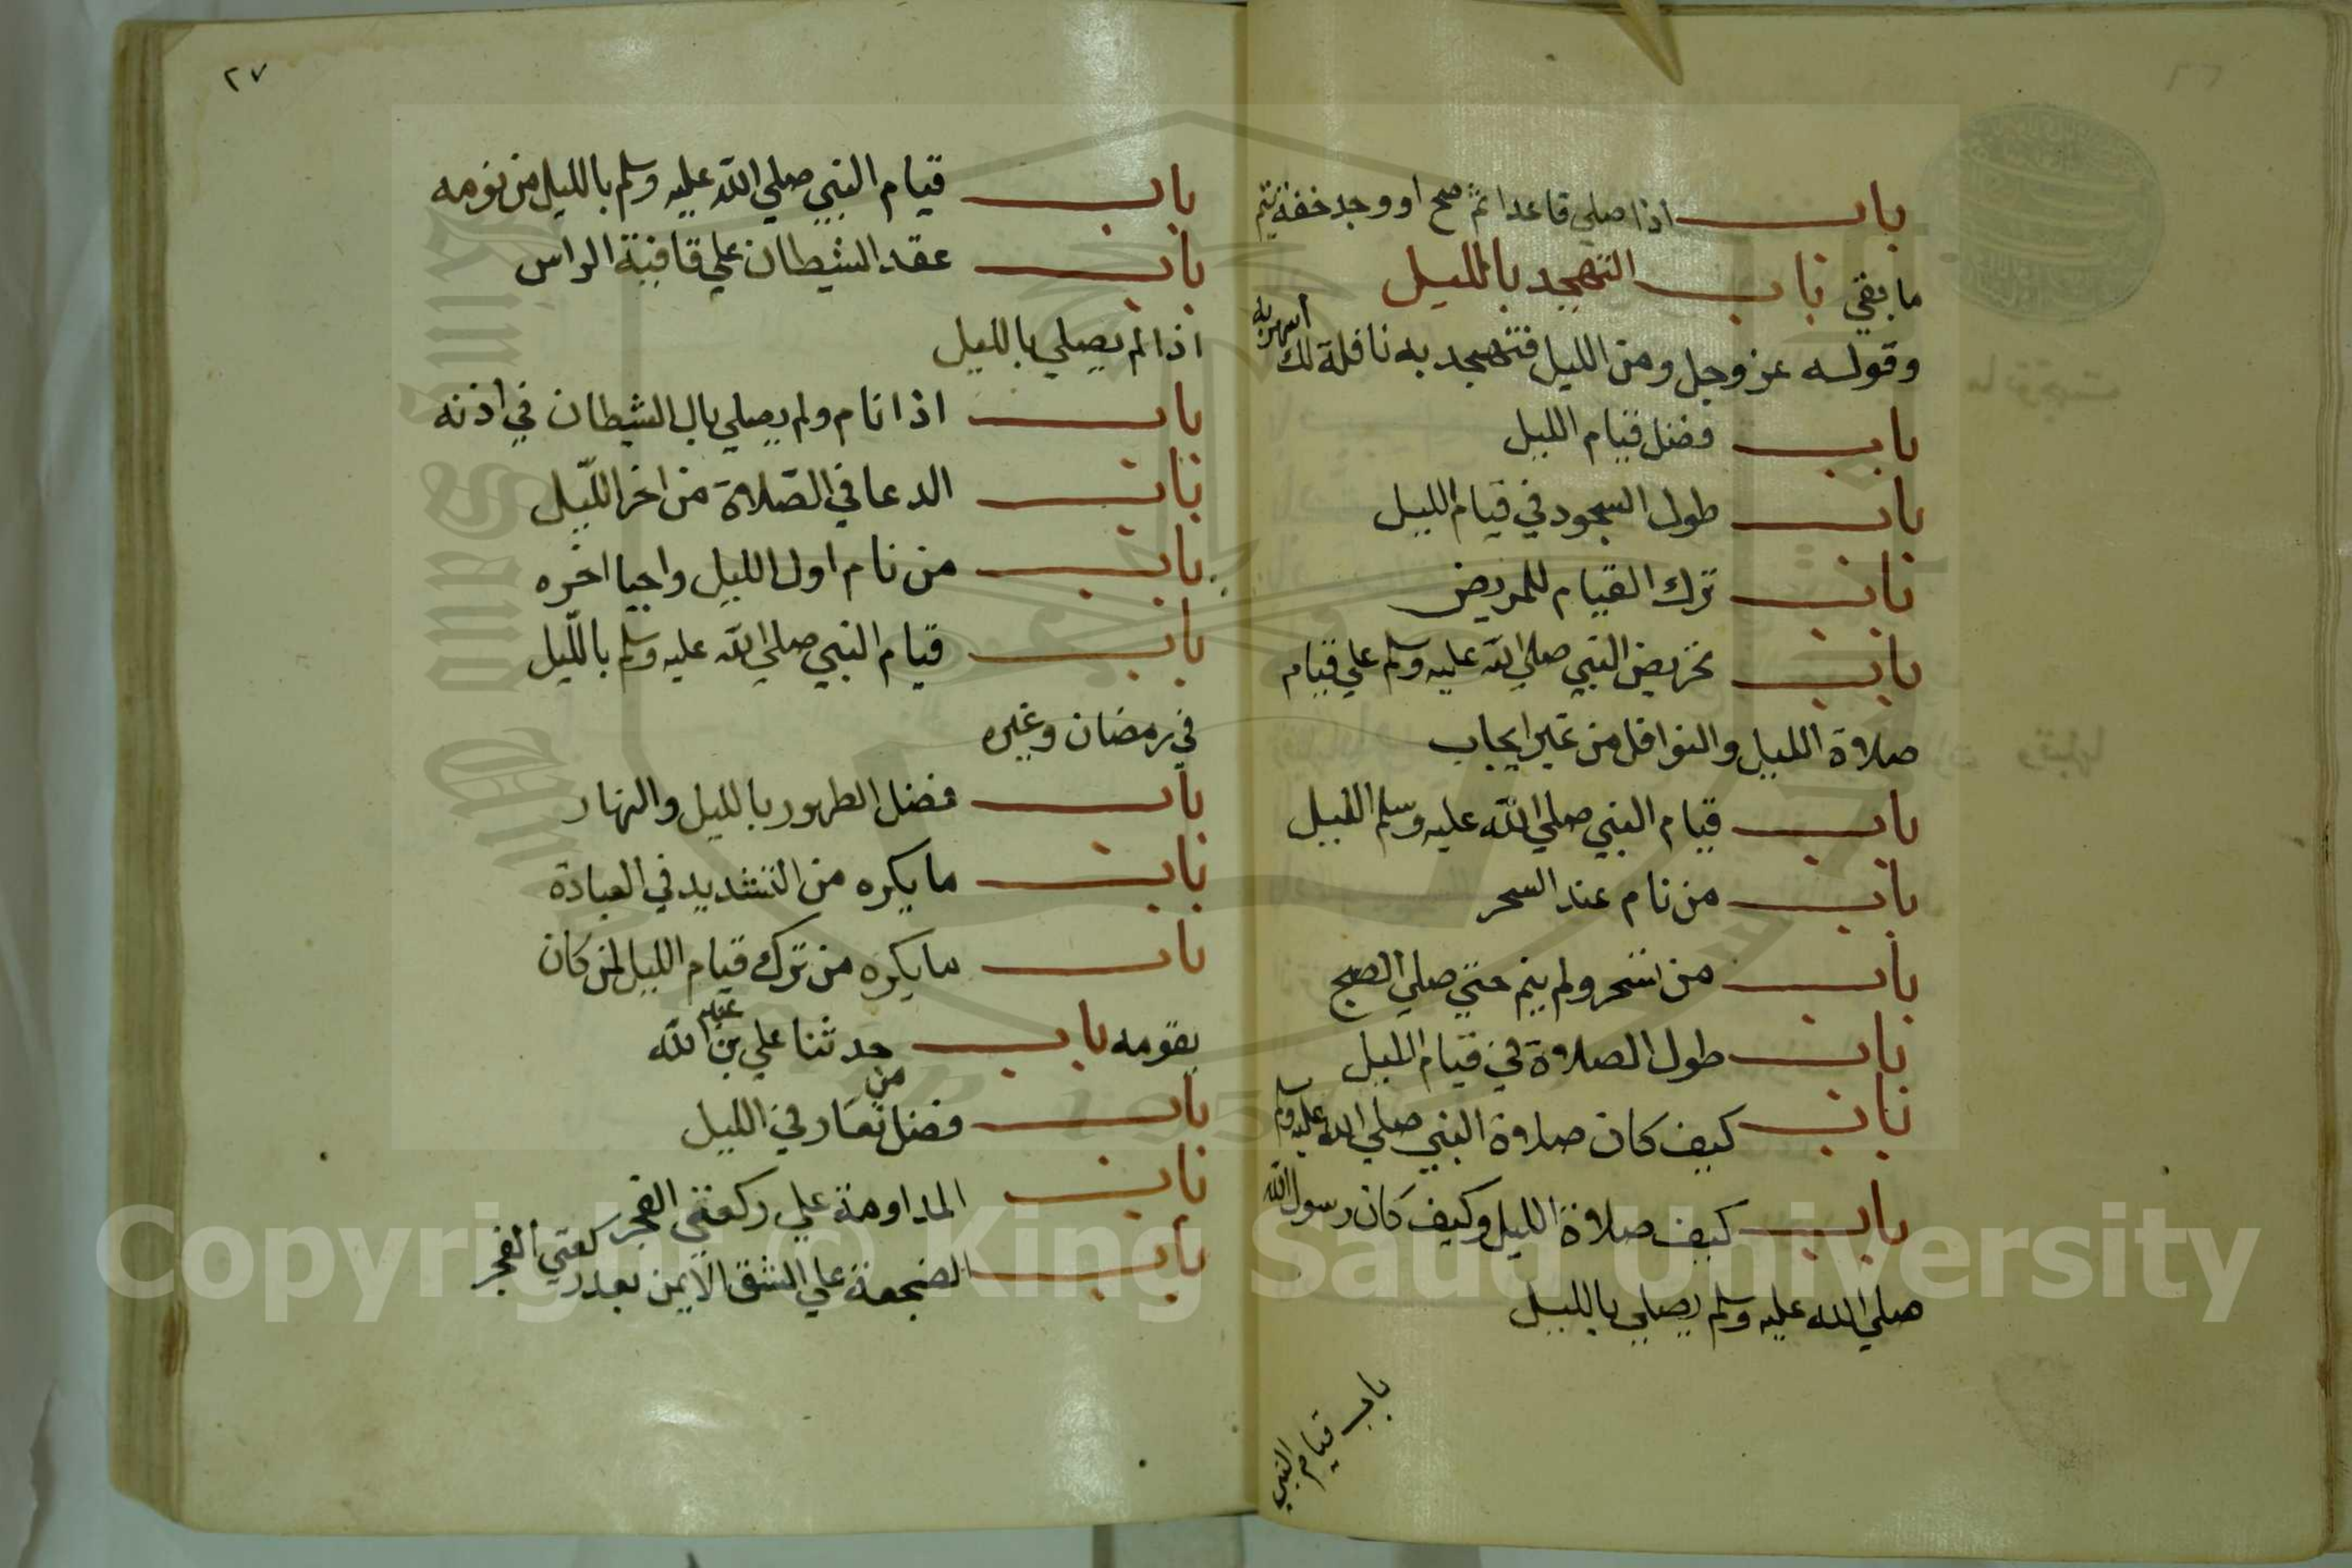 باب اذا صلي قاعدا ثم صح او وجد خفة تتم
ما بقي باب التهجد بالليل
وقوله عز وجل ومن الليل فتهجد به نافلة لك اسهر به
باب فضل قيام الليل
باب طول السجود في قيام الليل
باب ترك القيام للمريض
باب تحريض النبي صلي الله عليه وسلم علي قيام
صلاة الليل والنوافل من غير ايجاب
باب قيام النبي صلي الله عليه وسلم الليل
باب من نام عند السحر
باب من تسحر ولم ينم حتي صلي الصبح
باب طول الصلاة في قيام الليل
باب كيف كان صلاة النبي صلي الله عليه وسلم
باب كيف صلاة الليل وكيف كان رسول الله
صلي الله عليه وسلم يصلي بالليل
باب قيام النبي
٢٧
باب قيام النبي صلي الله عليه وسلم بالليل من نومه
باب عقد الشيطان علي قافية الراس
اذا لم يصلي بالليل
باب اذا نام ولم يصلي بال الشيطان في اذنه
باب الدعا في الصلاة من اخر الليل
باب من نام اول الليل واحيا اخره
باب قيام النبي صلي الله عليه وسلم بالليل
في رمضان وغيره
باب فضل الطهور بالليل والنهار
باب ما يكره من التشديد في العبادة
باب ما يكره من ترك قيام الليل لمن كان
يقومه باب حدثنا علي بن عبد الله
باب فضل من تعار في الليل
باب المداومة علي ركعتي الفجر
باب الضجعة علي الشق الايمن بعد ركعتي الفجر
Copyright © King Saud University